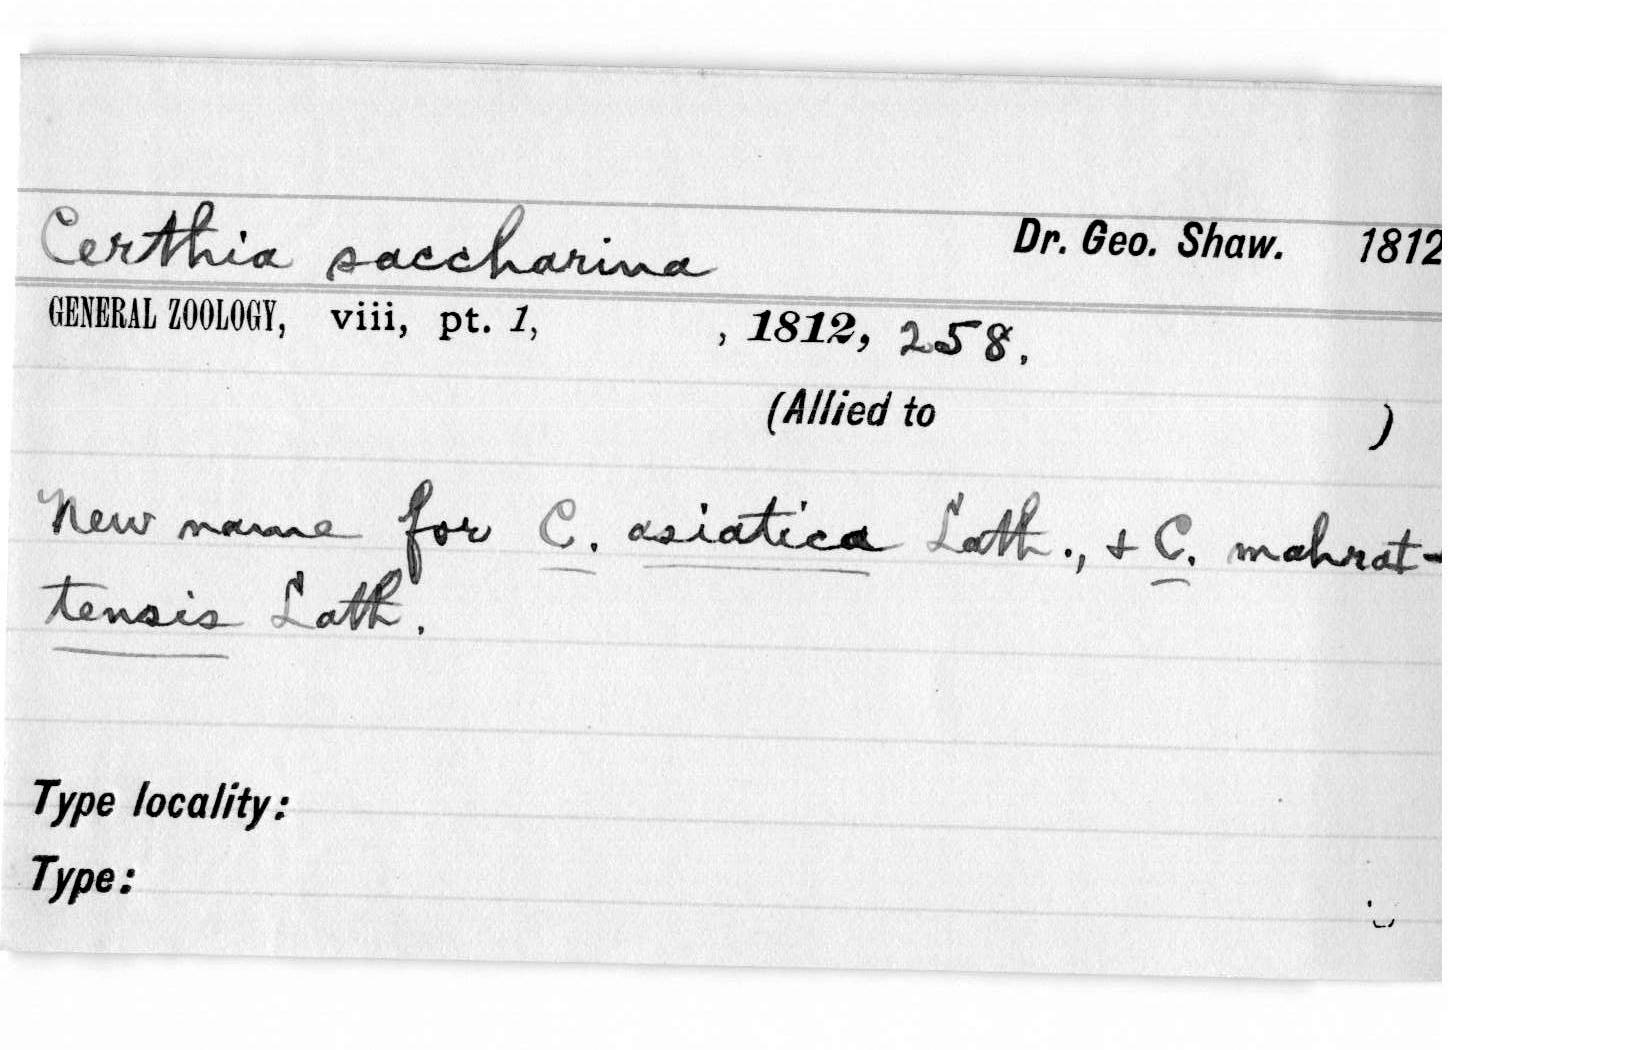 Certhia saccharina Dr. Geo. Shaw. 1812
GENERAL ZOOLOGY, viii, pt. 1, , 1812, 258.
(Allied to )
New name for C. asiatica Lath., & C. mahrat-
tensis Lath.
Type locality:
Type: